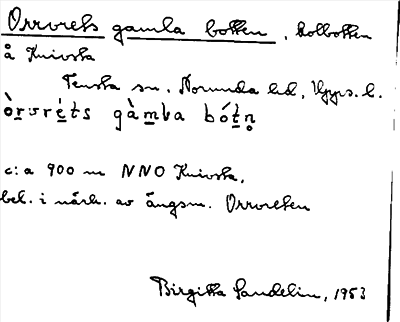 Orrvrets gamla botten, kolbotten
å Knivsta
Tensta sn. Norunda hd, Upps. l.
òrvréts gàmla bótn̥
c:a 900 m NNO Knivsta,
bel. i närh. av ängsm. Orrvreten
Birgitta Sandelin, 1953